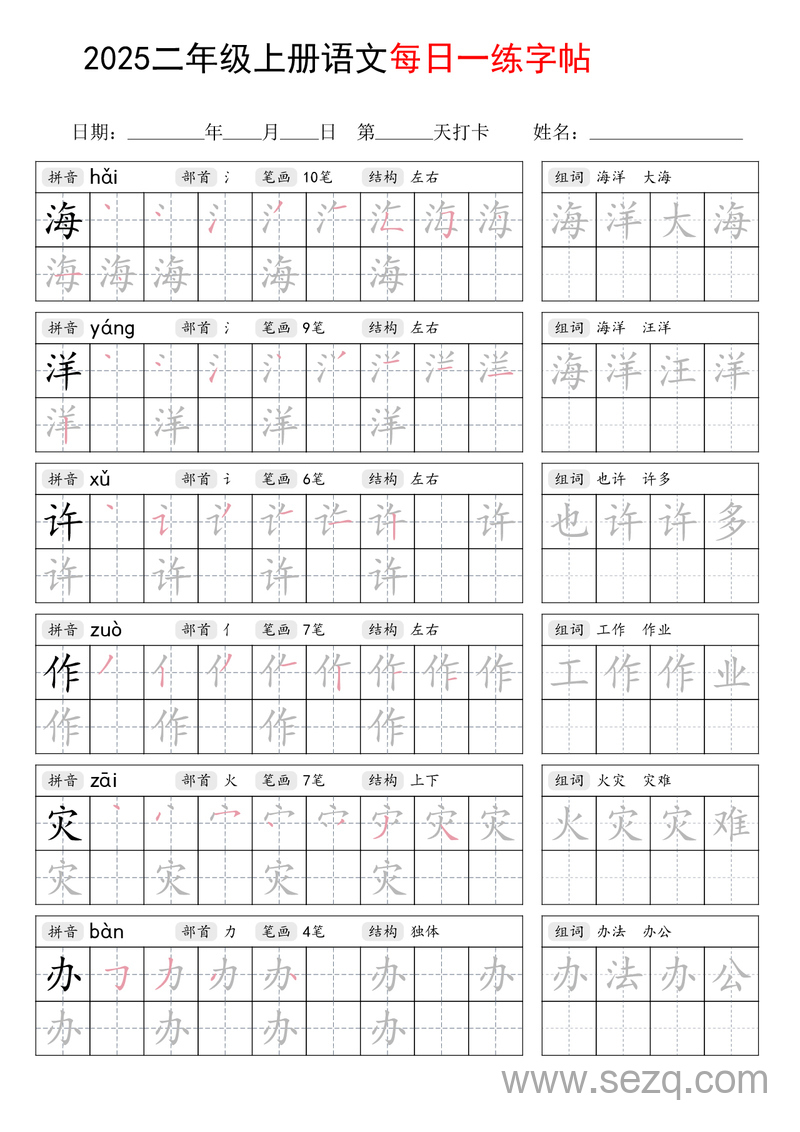 2025二年级上册语文每日一练字帖
日期：________年____月____日 第______天打卡 姓名：________________
拼音 hǎi 部首 氵 笔画 10笔 结构 左右 组词 海洋 大海
海 海 洋 大 海
海 海 海 海 海
拼音 yáng 部首 氵 笔画 9笔 结构 左右 组词 海洋 汪洋
洋 海 洋 汪 洋
洋 洋 洋 洋
拼音 xǔ 部首 讠 笔画 6笔 结构 左右 组词 也许 许多
许 许 许 也 许 许 多
许 许 许 许
拼音 zuò 部首 亻 笔画 7笔 结构 左右 组词 工作 作业
作 作 作 工 作 作 业
作 作 作 作
拼音 zāi 部首 火 笔画 7笔 结构 上下 组词 火灾 灾难
灾 灾 灾 火 灾 灾 难
灾 灾 灾 灾
拼音 bàn 部首 力 笔画 4笔 结构 独体 组词 办法 办公
办 力 办 办 办 办 办 法 办 公
办 办 办 办
www.sezq.com